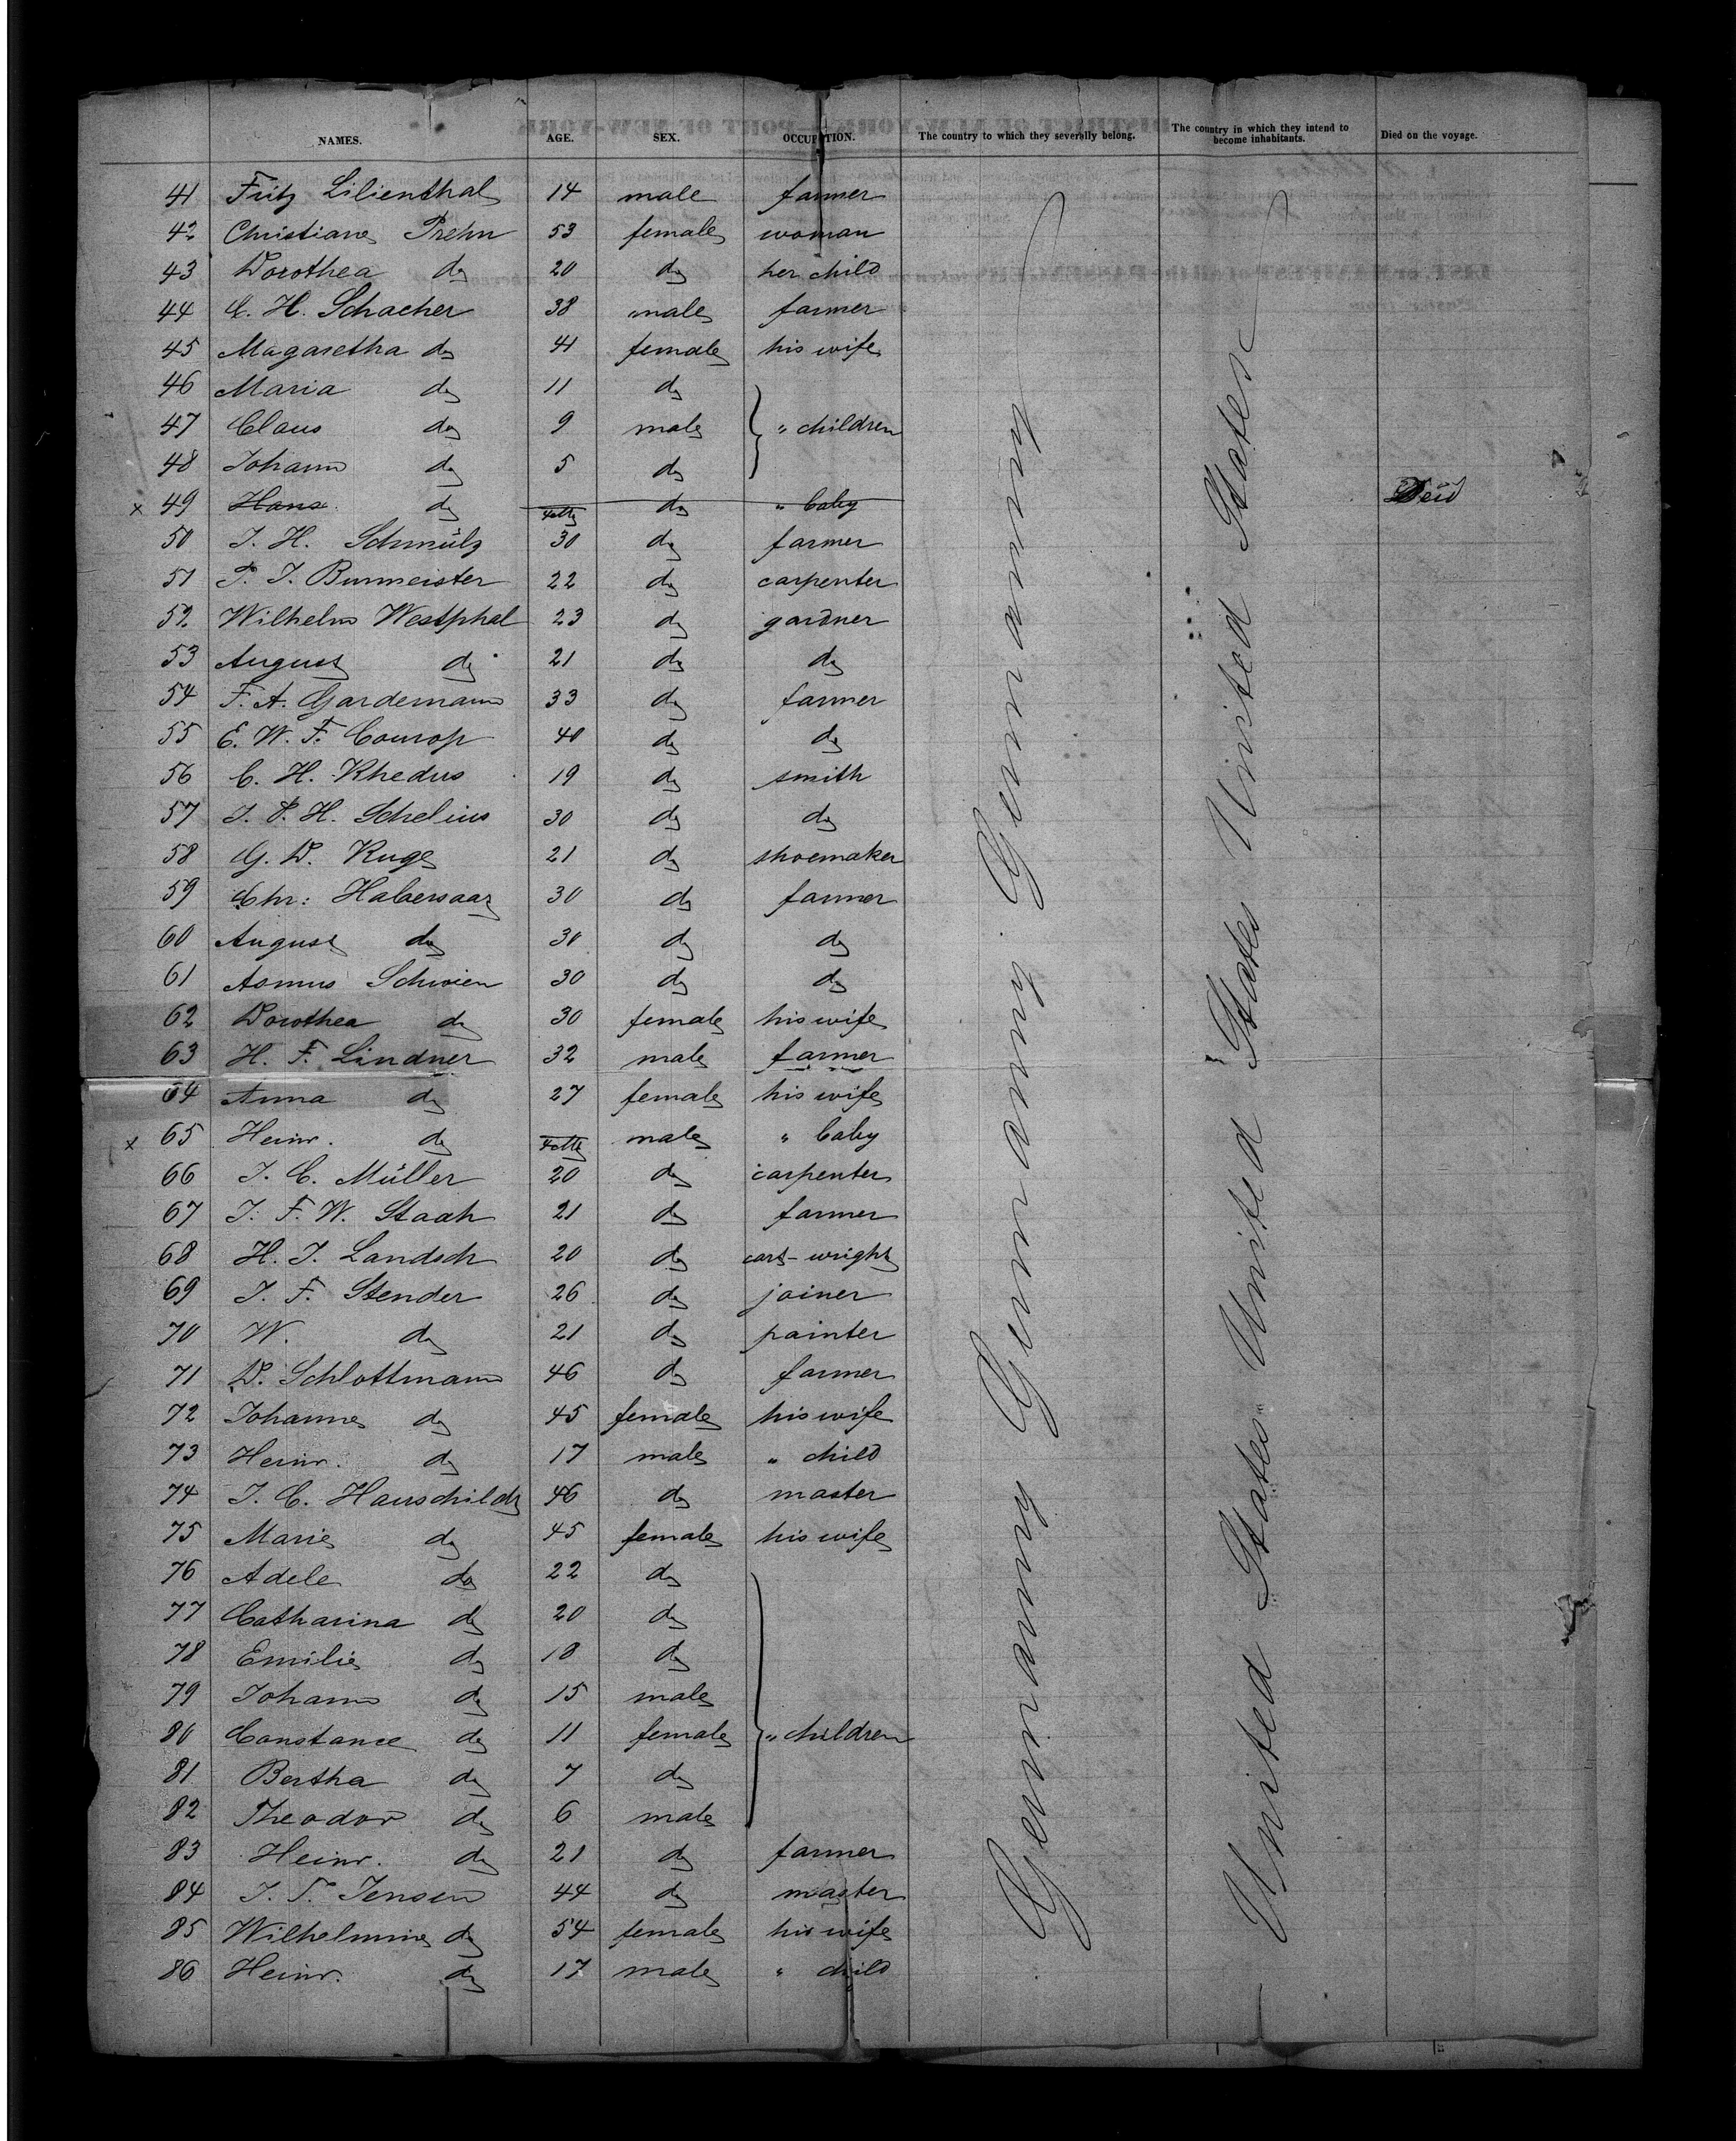 NAMES. AGE. SEX. OCCUPATION. The country to which they severally belong. The country in which they intend to become inhabitants. Died on the voyage.
41 Fritz Lilienthal 14 male farmer
42 Christiane Prehn 53 female woman
43 Dorothea do 20 do her child
44 C. H. Schacher 38 male farmer
45 Magaretha do 41 female his wife
46 Maria do 11 do
47 Claus do 9 male " children
48 Johann do 5 do
x 49 Hans do do " baby Deid
50 J. H. Schmülz 30 do farmer
51 P. J. Burmeister 22 do carpenter
52 Wilhelm Westphal 23 do gardner
53 August do 21 do do
54 F. A. Gardemann 33 do farmer
55 E. W. F. Courop 40 do do
56 C. H. Rhedus 19 do smith
57 J. P. H. Schelius 30 do do
58 G. D. Ruge 21 do shoemaker
59 Chr: Habersaat 30 do farmer
60 August do 30 do do
61 Asmus Schwien 30 do do
62 Dorothea do 30 female his wife
63 H. F. Lindner 32 male farmer
64 Anna do 27 female his wife
x 65 Heinr. do male " baby
66 J. C. Müller 20 do carpenter
67 J. F. W. Staah 21 do farmer
68 H. J. Landsch 20 do cart-wright
69 J. F. Stender 26 do joiner
70 W. do 21 do painter
71 D. Schlottmann 46 do farmer
72 Johanne do 45 female his wife
73 Heinr. do 17 male " child
74 J. C. Hauschildt 46 do master
75 Marie do 45 female his wife
76 Adele do 22 do
77 Catharina do 20 do
78 Emilie do 18 do
79 Johann do 15 male
80 Constance do 11 female " children
81 Bertha do 7 do
82 Theodor do 6 male
83 Heinr. do 21 do farmer
84 J. P. Jensen 44 do master
85 Wilhelmine do 54 female his wife
86 Heinr. do 17 male " child
Germany Germany Germany Germany
United States United States United States